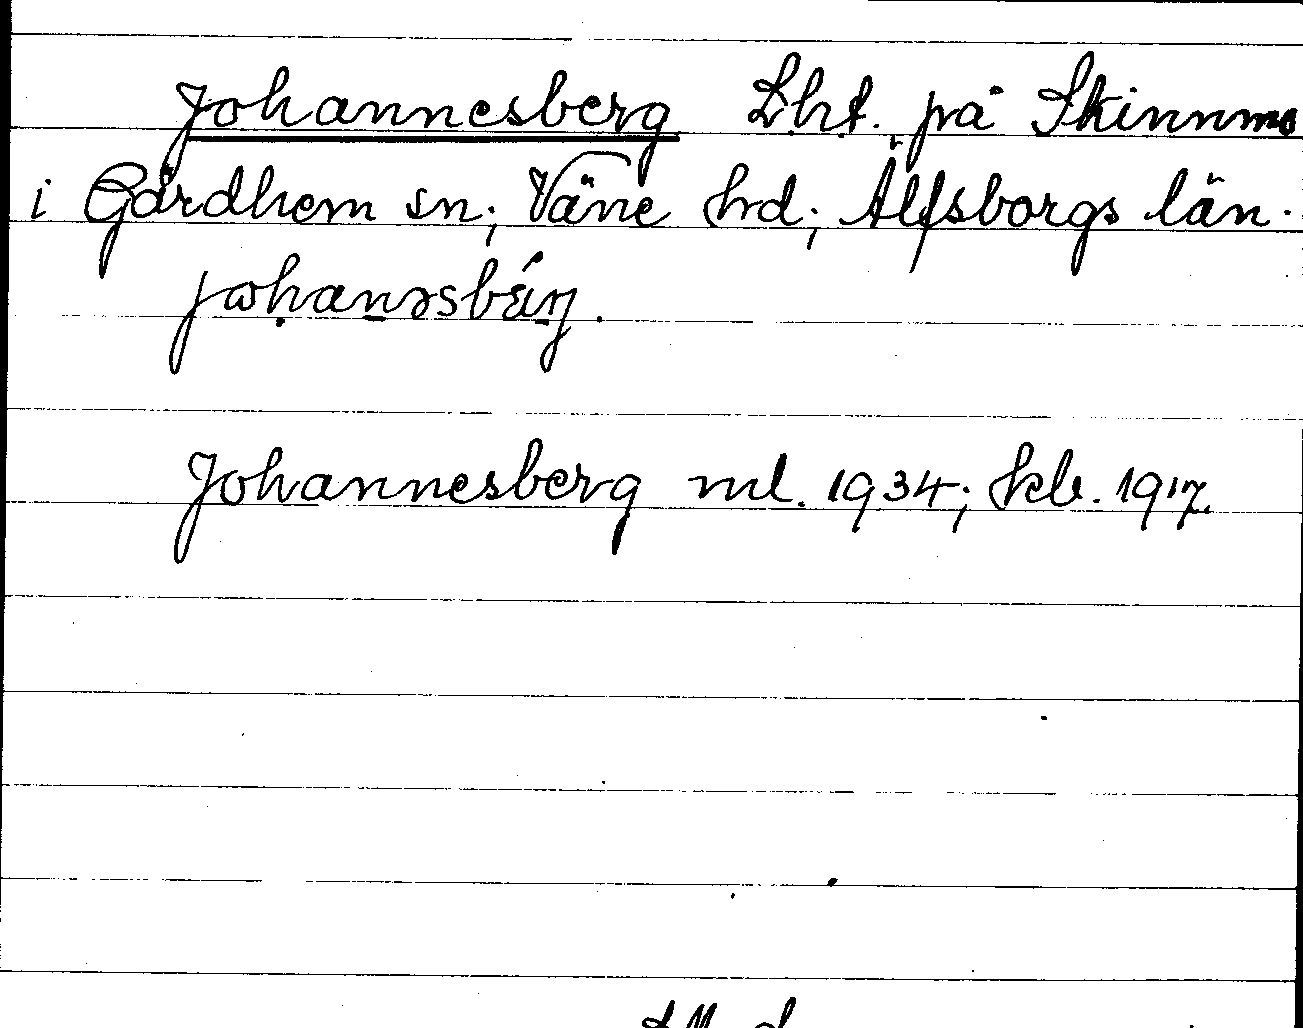 Johannesberg Lht. på Skinnmo
i Gärdhem sn; Väne hd; Älfsborgs län.
Johannesberg ml. 1934; kb. 1917.